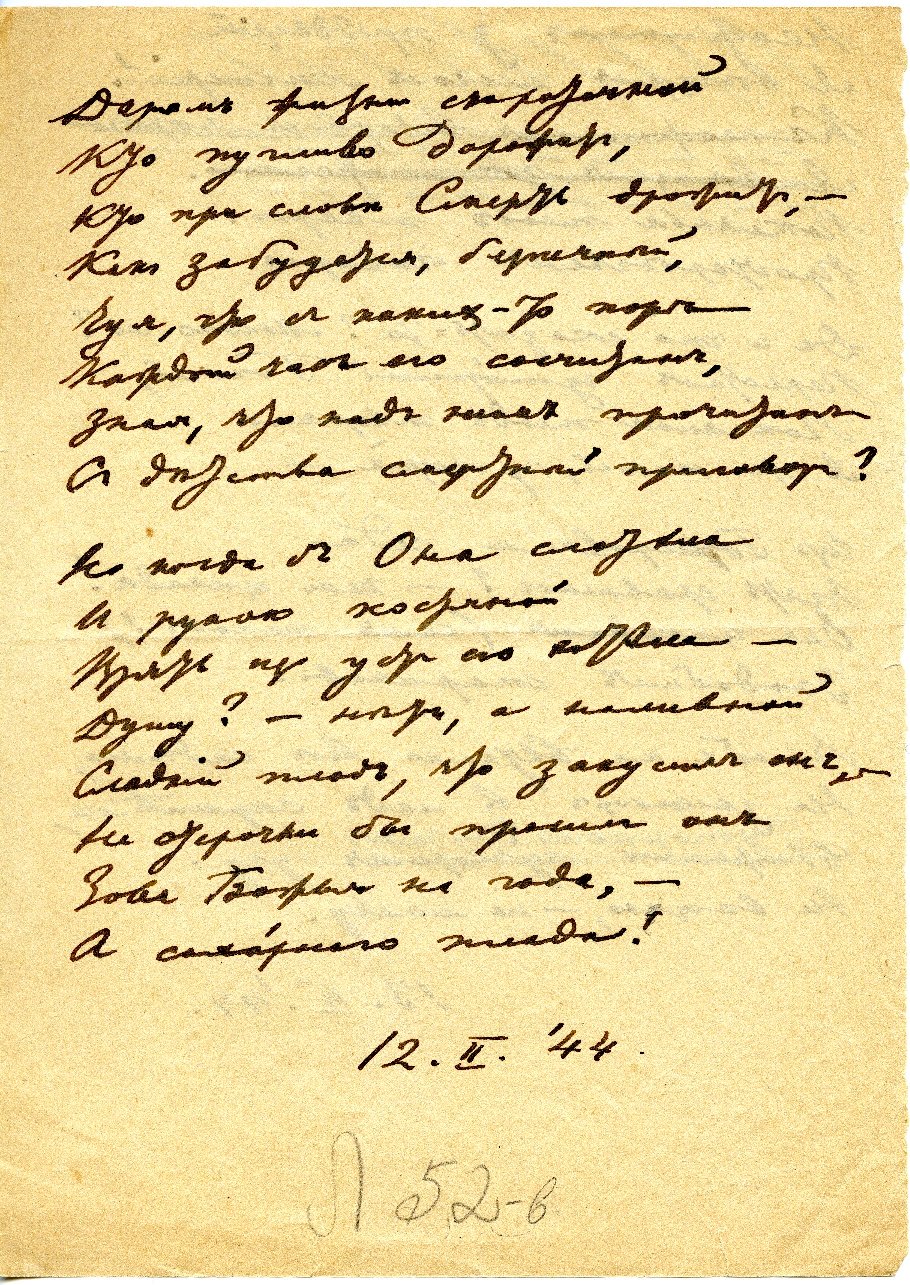 Даромъ жизни скоротечной
Кто пугливо дорожитъ,
Кто при словѣ Смерть дрожитъ, —
Какъ забудется, безпечный,
Чуя, что съ какихъ-то поръ
Каждый часъ его сосчитанъ,
Зная, что надъ нимъ прочитанъ
Съ дѣтства смертный приговоръ?
Но когда бъ Она слетѣла
И рукою костяной
Взять изъ устъ его хотѣла —
Душу? — нѣтъ, а наливной
Сладкій плодъ, что закусилъ онъ, —
Не отсрочки бы просилъ онъ
Зова Божья на года, —
А сахарнаго плода!
12. II. '44.
Л 52-в